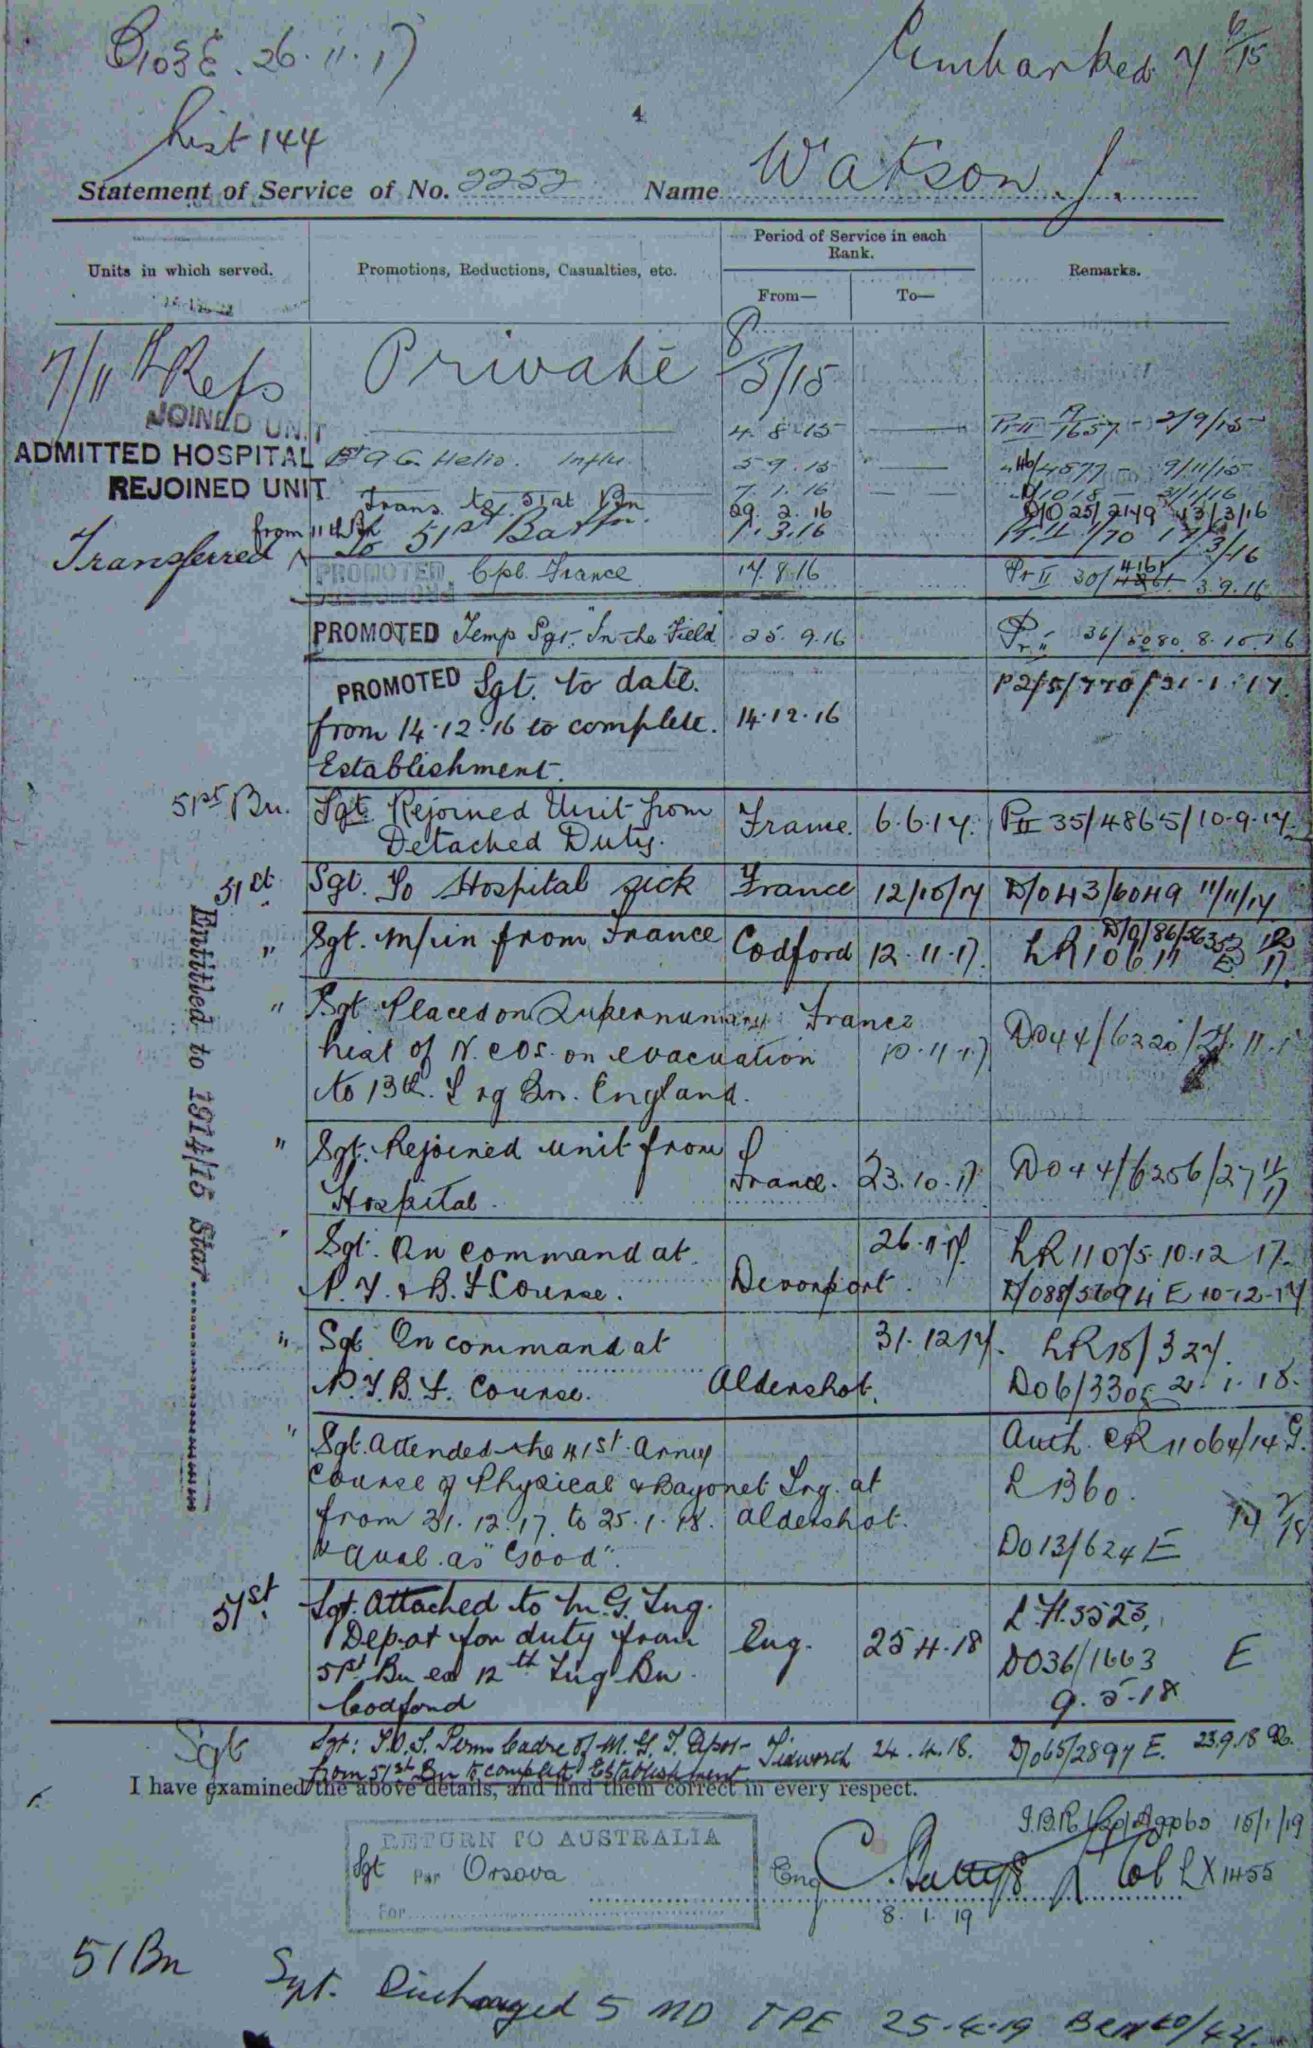 B103E. 26.11.17
Embarked 7 6/15
4
List 144
Statement of Service of No. 2252 Name Watson. J.
Units in which served.
Promotions, Reductions, Casualties, etc.
Period of Service in each Rank.
Remarks.
From—
To—
7/11th Refs Private 8/5/15
JOINED UNIT 4.8.15 2/9/15
ADMITTED HOSPITAL Influ 5.9.15 4577 9/11/15
REJOINED UNIT 7.1.16 1018 31/1/16
Trans. to 51st Bn 29.2.16 DO 25/2149 13/3/16
Transferred from 11th Bn To 51st Battn. 1.3.16
PROMOTED Cpl. France 17.8.16 Pr II 30/4161 3.9.16
PROMOTED Temp Sgt. "In the Field" 25.9.16 36/5080 8.10.16
PROMOTED Sgt. to date.
from 14.12.16 to complete. 14.12.16
Establishment.
P2/5/770/31.1.17.
51st Bn. Sgt. Rejoined Unit from
Detached Duty. France. 6.6.17. PII 35/4865/10.9.17.
51st Sgt. To Hospital sick France 12/10/17 D/O43/6049 11/11/17
" Sgt. m/in from France Codford 12.11.17. LR10617
" Sgt. Placed on Supernumary France
list of N.COs. on evacuation 10.11.17
to 13th. Trg Bn. England.
DO44/6220/27.11.
" Sgt. Rejoined unit from
Hospital. France. 23.10.17 DO44/6256/27 11/17
" Sgt. On command at
P.T. & B.F. Course. Devonport. 26.11.17. LR11075.10.12 17.
D/O88/5694 E 10-12-17
" Sgt. On command at
P.T.B.F. Course. Aldershot. 31.12.17. LR18/327.
DO6/3305 21.1.18.
" Sgt. Attended the 41st. Army
Course of Physical & Bayonet Trg. at
from 31.12.17. to 25.1.18. Aldershot.
Qual. as "Good".
Auth. CR11064/14 G.
L1360.
DO13/624 E
51st. Sgt. Attached to M.G. Trng.
Depot for duty from
51st Bn ex 12th Trng Bn.
Codford
Eng. 25.4.18
LH.5523,
DO36/1663 E
9.5.18
Sgt Sgt: T.O.S. Perm Cadre of M.G.T. Depot Tidworth 24.4.18. D/O65/2897 E. 23.9.18
from 51st Bn to complete Establishment
Entitled to 1914/15 Star
I have examined the above details, and find them correct in every respect.
RETURN TO AUSTRALIA
Sgt Per Orsova
For
Eng
15/1/19
Lt Col LX1455
8.1.19
51 Bn Sgt. Discharged 5 MD TPE 25.4.19